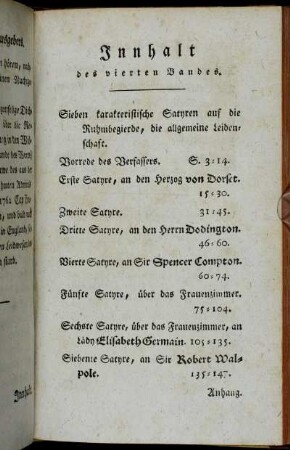 usgebers.
Innhalt
des vierten Bandes.
Sieben karakteristische Satyren auf die
Ruhmbegierde, die allgemeine Leiden-
schaft.
Vorrede des Verfassers. S. 3=14.
Erste Satyre, an den Herzog von Dorset.
15=30.
Zweite Satyre. 31=45.
Dritte Satyre, an den Herrn Dodington.
46=60.
Vierte Satyre, an Sir Spencer Compton.
60=74.
Fünfte Satyre, über das Frauenzimmer.
75=104.
Sechste Satyre, über das Frauenzimmer, an
Lady Elisabeth Germain. 105=135.
Siebente Satyre, an Sir Robert Wal-
pole. 135=147.
Anhang.